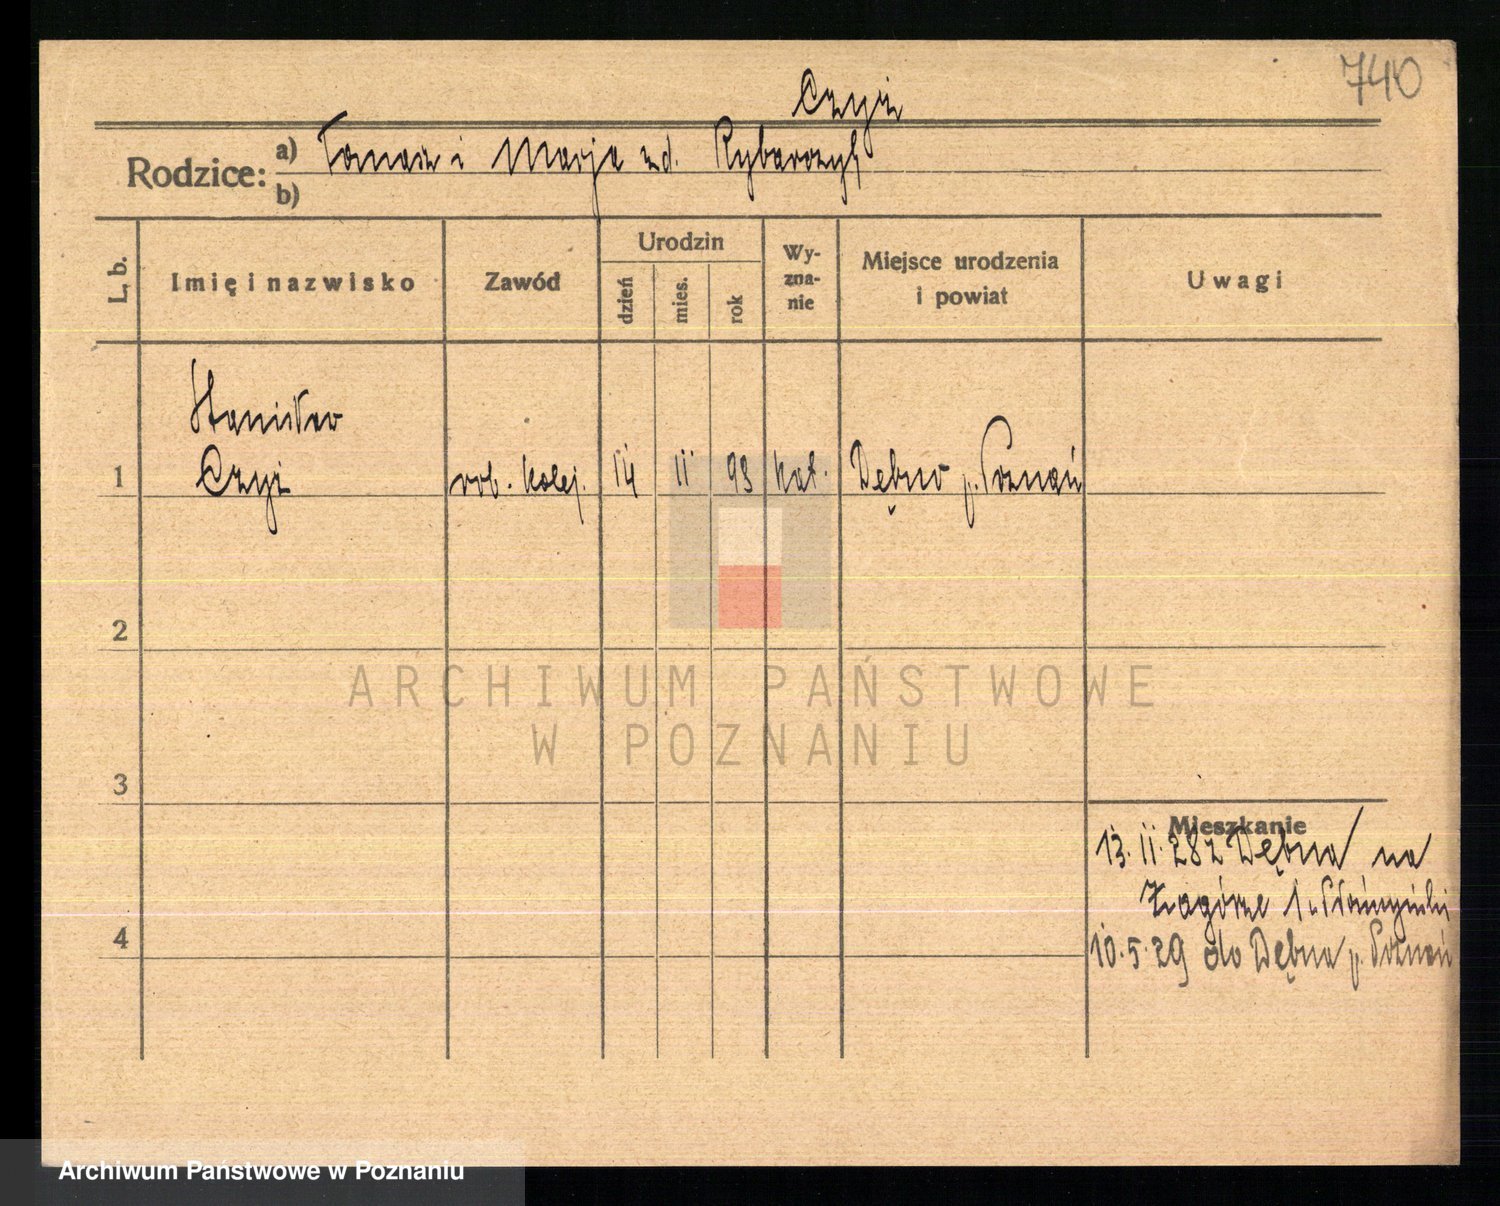 740
Czyż
Rodzice: a) Tomasz i Marja zd. Rybarczyk
b)
L. b.
Imię i nazwisko
Zawód
Urodzin
dzień
mies.
rok
Wy-
zna-
nie
Miejsce urodzenia
i powiat
Uwagi
Stanisław
1 Czyż rob. kolej. 14 11 93 kat. Dębno p. Poznań
2
ARCHIWUM PAŃSTWOWE
W POZNANIU
3
Mieszkanie
13.11.28 z Dębna na
Zagórze 1
4
10.5.29 do Dębna p. Poznań
Archiwum Państwowe w Poznaniu